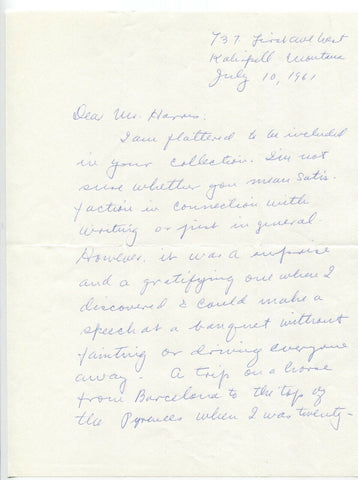 737 First Ave West
Kalispell - Montana
July 10, 1961
Dear Mr. Harris:
I am flattered to be included
in your collection. I'm not
sure whether you mean satis-
faction in connection with
writing or just in general.
However, it was a surprise
and a gratifying one when I
discovered I could make a
speech at a banquet without
fainting or driving everyone
away. A trip on a horse
from Barcelona to the top of
the Pyrenees when I was twenty-